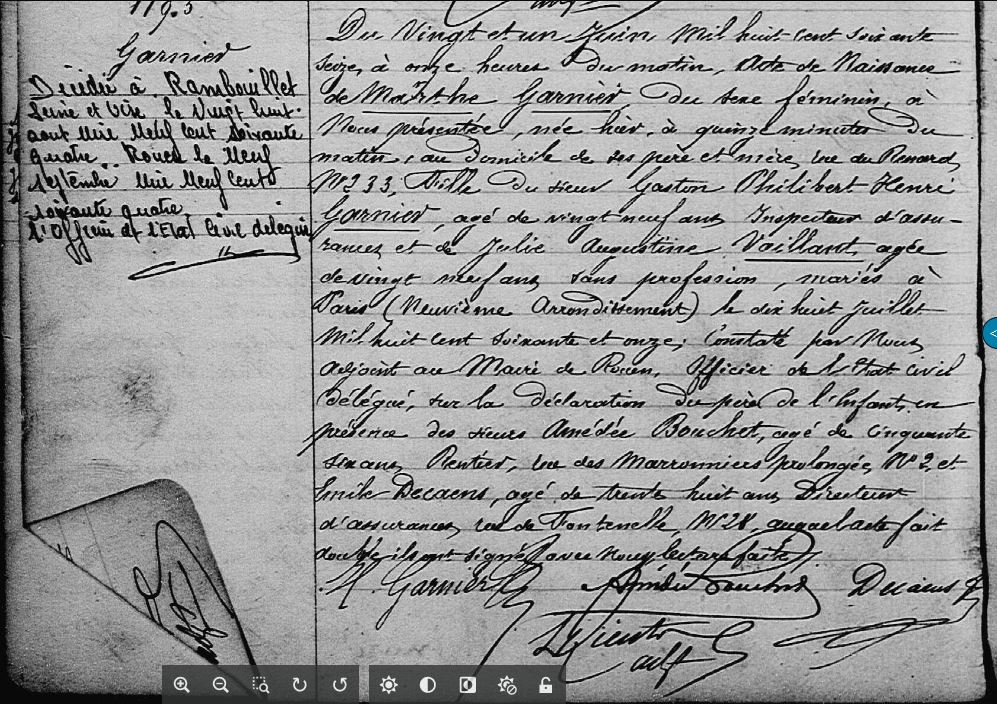 1193
Garnier
Décédée à Rambouillet
Seine et Oise le Vingt huit
aout Mil Neuf Cent Soixante
quatre. Rouen le Neuf
septembre Mil Neuf Cent
soixante quatre
l'Officier de l'Etat Civil délégué
Du Vingt et un Juin Mil huit cent soixante
seize, à onze heures du matin, Acte de Naissance
de Marthe Garnier du sexe féminin, à
Nous présentée, née hier, à quinze minutes du
matin, au domicile de ses père et mère, rue du Renard,
N° 33, Fille du sieur Gaston Philibert Henri
Garnier, agé de vingt neuf ans, Inspecteur d'assu-
rances et de Julie Augustine Vaillant, agée
de vingt neuf ans, sans profession, mariés à
Paris (Neuvième Arrondissement) le dix huit Juillet
Mil huit cent soixante et onze; Constaté par Nous,
Adjoint au Maire de Rouen, Officier de l'Etat civil
délégué, sur la déclaration du père de l'Enfant, en
présence des sieurs Amédée Bouchet, agé de cinquante
six ans, Rentier, rue des Marronniers prolongée, N° 2, et
Emile Decaens, agé de trente huit ans, Directeur
d'assurances, rue de Fontenelle, N° 28, auquel acte fait
double ils ont signé avec nous, lecture faite
H. Garnier Amédée Bouchet Decaens
adjt